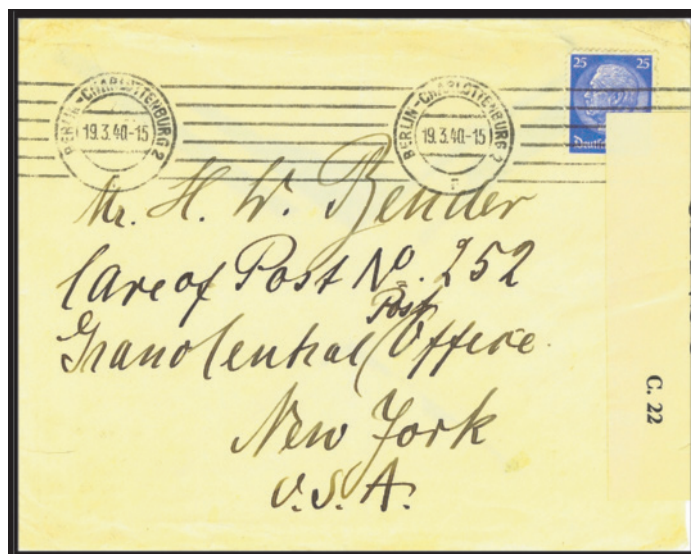 BERLIN-CHARLOTTENBURG 2
19.3.40-15
BERLIN-CHARLOTTENBURG 2
19.3.40-15
25 25
Mr. H. W. Bender
Care of Post No. 252
Grand Central Post Office
New York
U.S.A.
C. 22